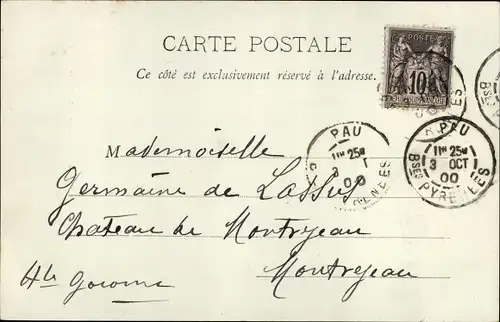 CARTE POSTALE
Ce côté est exclusivement réservé à l'adresse.
POSTE
10
PAU
11M 25M
3 OCT
00
BSES PYRENEES
PAU
11M 25M
3
00
Mademoiselle
Germaine de Lassus
Chateau de Montrejeau
Montrejeau
Hte Garonne